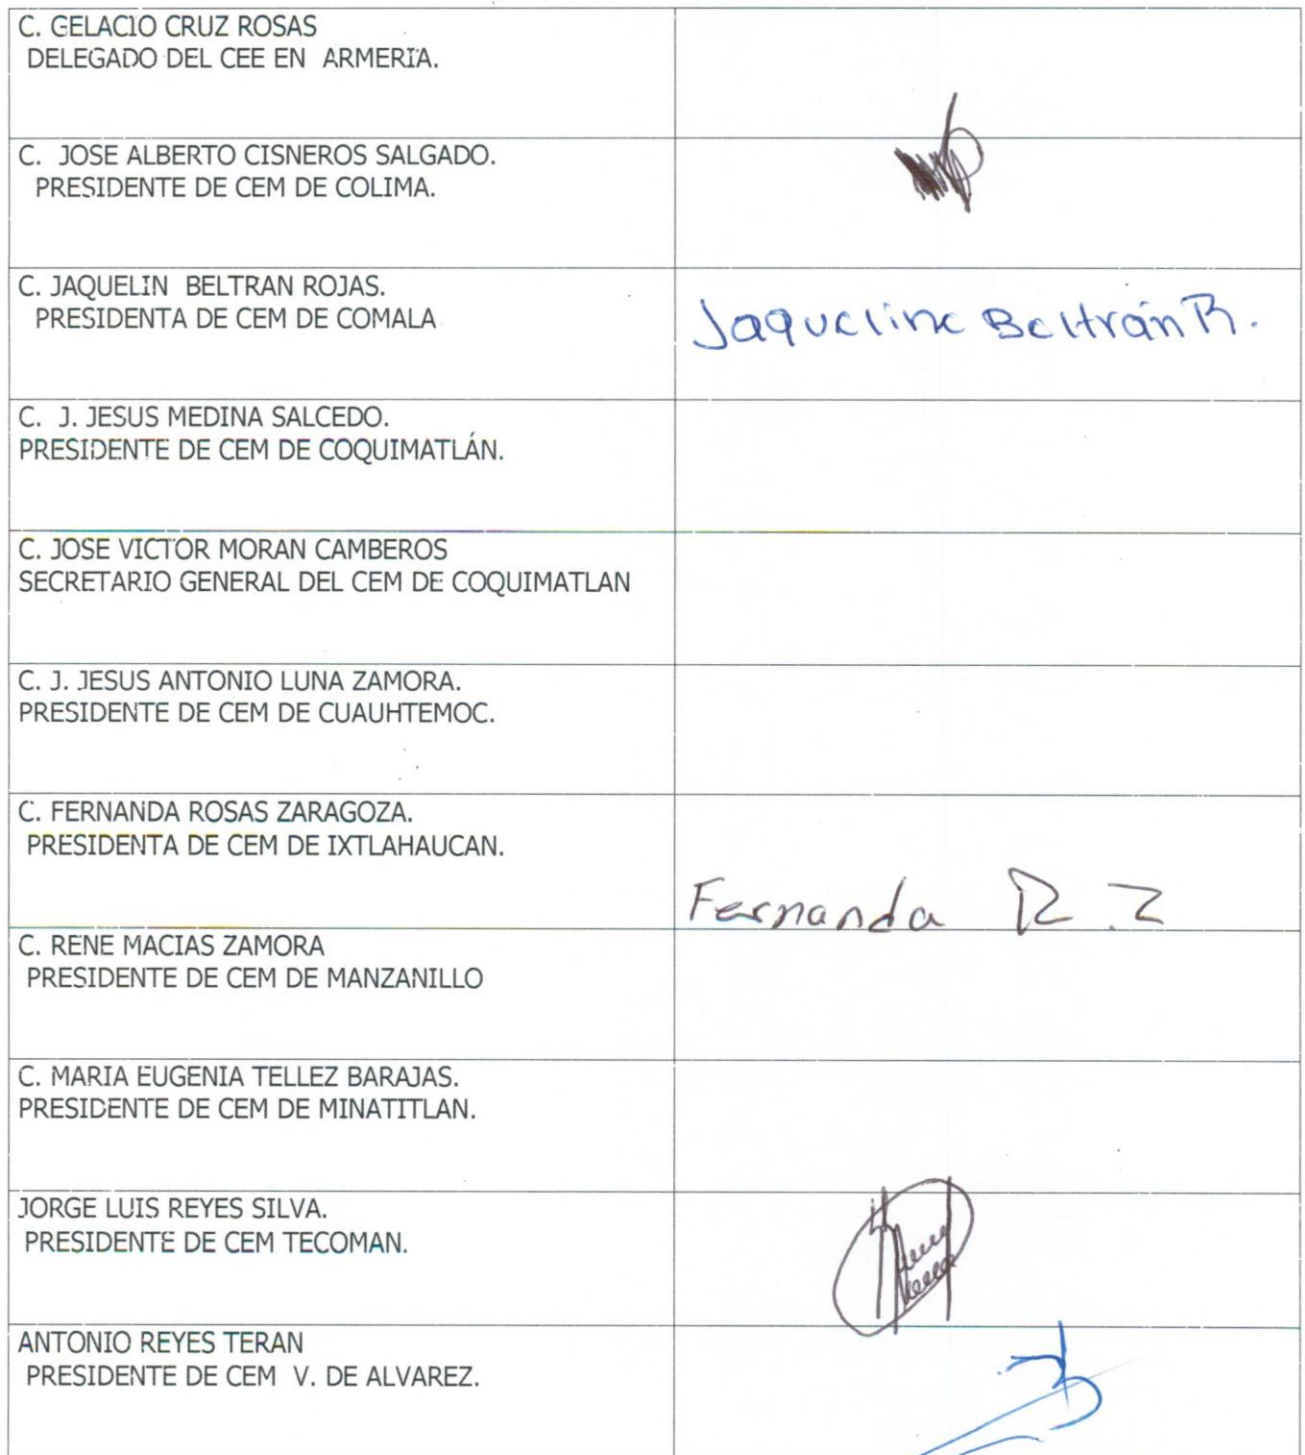 C. GELACIO CRUZ ROSAS
DELEGADO DEL CEE EN ARMERIA.
C. JOSE ALBERTO CISNEROS SALGADO.
PRESIDENTE DE CEM DE COLIMA.
C. JAQUELIN BELTRAN ROJAS.
PRESIDENTA DE CEM DE COMALA
Jaqueline Beltrán R.
C. J. JESUS MEDINA SALCEDO.
PRESIDENTE DE CEM DE COQUIMATLÁN.
C. JOSE VICTOR MORAN CAMBEROS
SECRETARIO GENERAL DEL CEM DE COQUIMATLAN
C. J. JESUS ANTONIO LUNA ZAMORA.
PRESIDENTE DE CEM DE CUAUHTEMOC.
C. FERNANDA ROSAS ZARAGOZA.
PRESIDENTA DE CEM DE IXTLAHAUCAN.
Fernanda R. Z
C. RENE MACIAS ZAMORA
PRESIDENTE DE CEM DE MANZANILLO
C. MARIA EUGENIA TELLEZ BARAJAS.
PRESIDENTE DE CEM DE MINATITLAN.
JORGE LUIS REYES SILVA.
PRESIDENTE DE CEM TECOMAN.
ANTONIO REYES TERAN
PRESIDENTE DE CEM V. DE ALVAREZ.